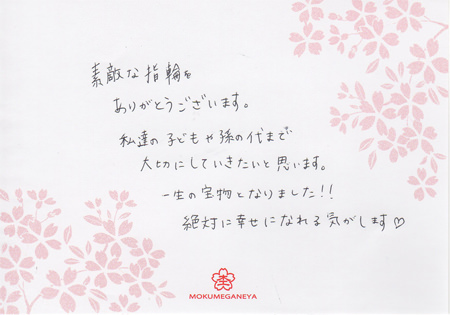 素敵な指輪を
ありがとうございます。
私達の子どもや孫の代まで
大切にしていきたいと思います。
一生の宝物となりました!!
絶対に幸せになれる気がします♡
MOKUMEGANEYA